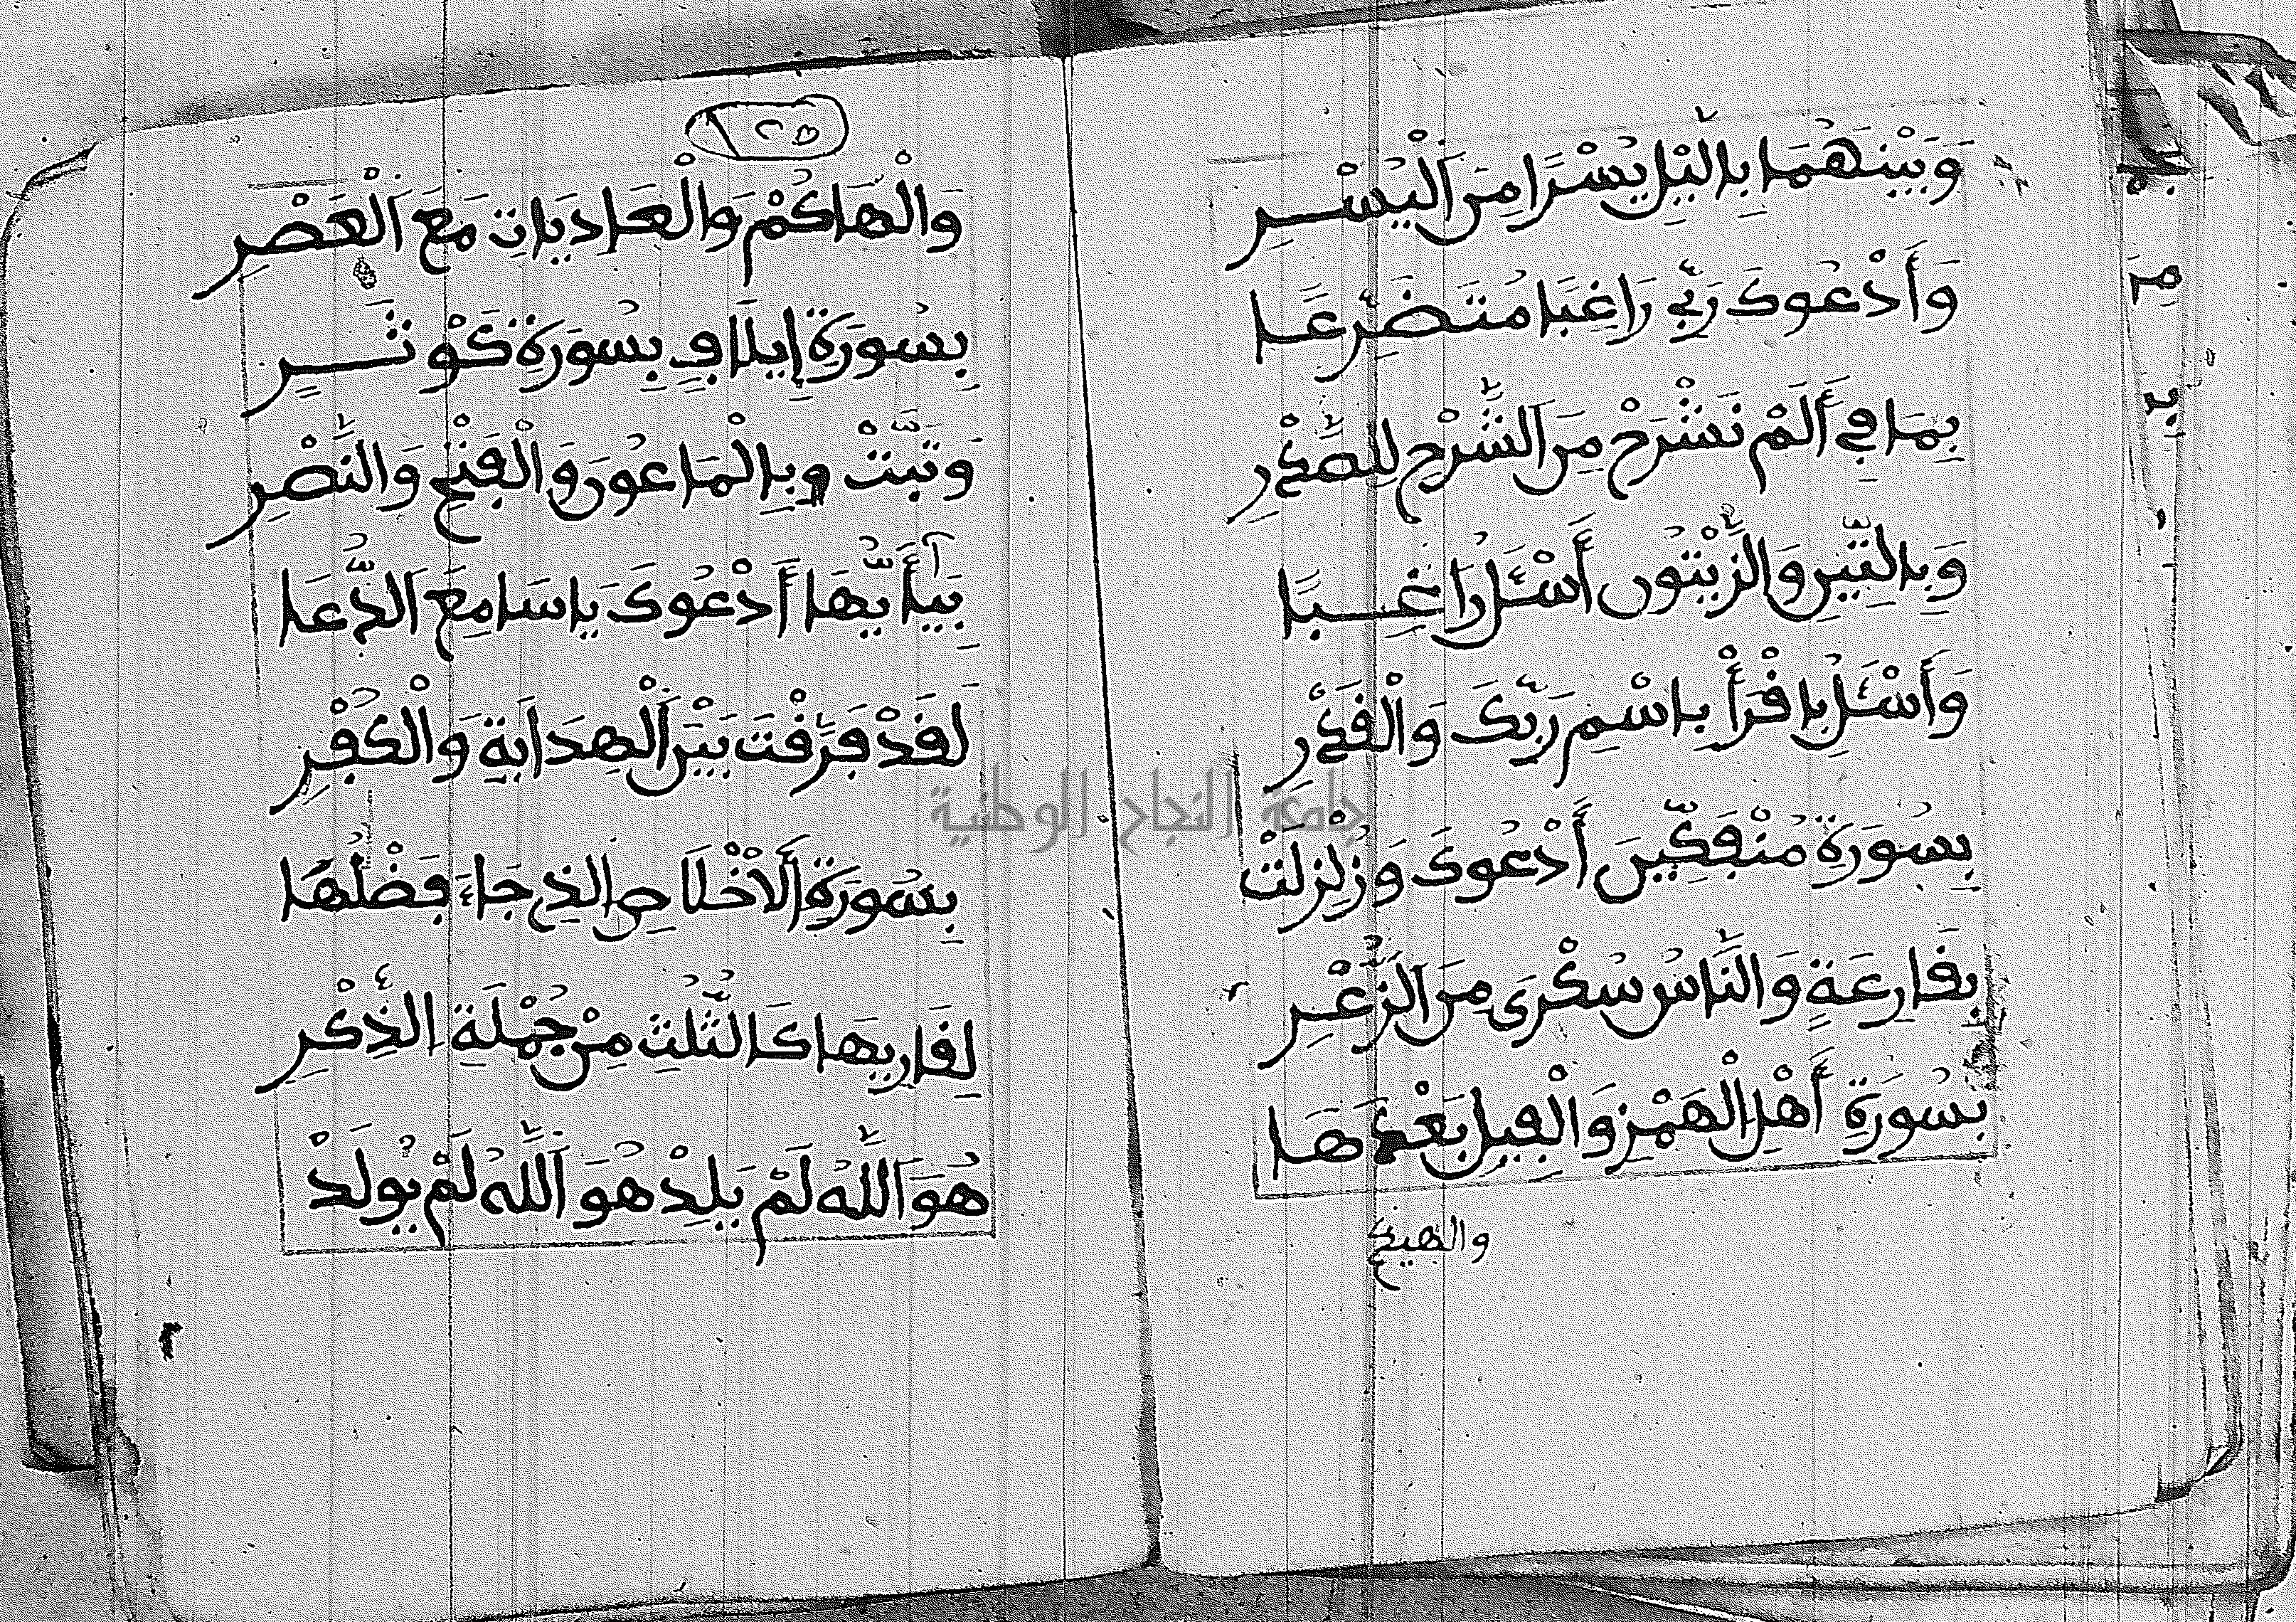 وَبَيْنَهُمَا بِالَّيْلِ يُسْرًا مِنَ الْيُسْرِ
وَأَدْعُوكَ رَبِّي رَاغِبًا مُتَضَرِّعًا
بِمَا فِي أَلَمْ نَشْرَحْ مِنَ الشَّرْحِ لِلصَّدْرِ
وَبِالتِّينِ وَالزَّيْتُونِ أَسْئَلُ رَاغِبًا
وَأَسْئَلُ بِاقْرَأْ بِاسْمِ رَبِّكَ وَالْقَدْرِ
بِسُورَةِ مُنْفَكِّينَ أَدْعُوكَ وَزُلْزِلَتْ
بِقَارِعَةٍ وَالنَّاسُ سُكْرَى مِنَ الذُّعْرِ
بِسُورَةِ أَهْلِ الْهَمْزِ وَالْفِيلِ بَعْدَهَا
١٢٥
وَالْهَاكُمْ وَالْعَادِيَاتِ مَعَ الْعَصْرِ
بِسُورَةِ إِيلَافِ بِسُورَةِ كَوْثَرِ
وَتَبَّتْ وَبِالْمَاعُونَ وَالْفَتْحِ وَالنَّصْرِ
بِيَأَيُّهَا أَدْعُوكَ يَا سَامِعَ الدُّعَا
لَقَدْ فَرَّقْتَ بَيْنَ الْهِدَايَةِ وَالْكُفْرِ
بِسُورَةِ الْأَخْلَاصِ الذِي جَاءَ فَضْلُهَا
لِقَارِيهَا كَالثُّلُثِ مِنْ جُمْلَةِ الذِّكْرِ
هُوَ اللَّهُ لَمْ يَلِدْ هُوَ اللَّهُ لَمْ يُولَدْ
جامعة النجاح الوطنية